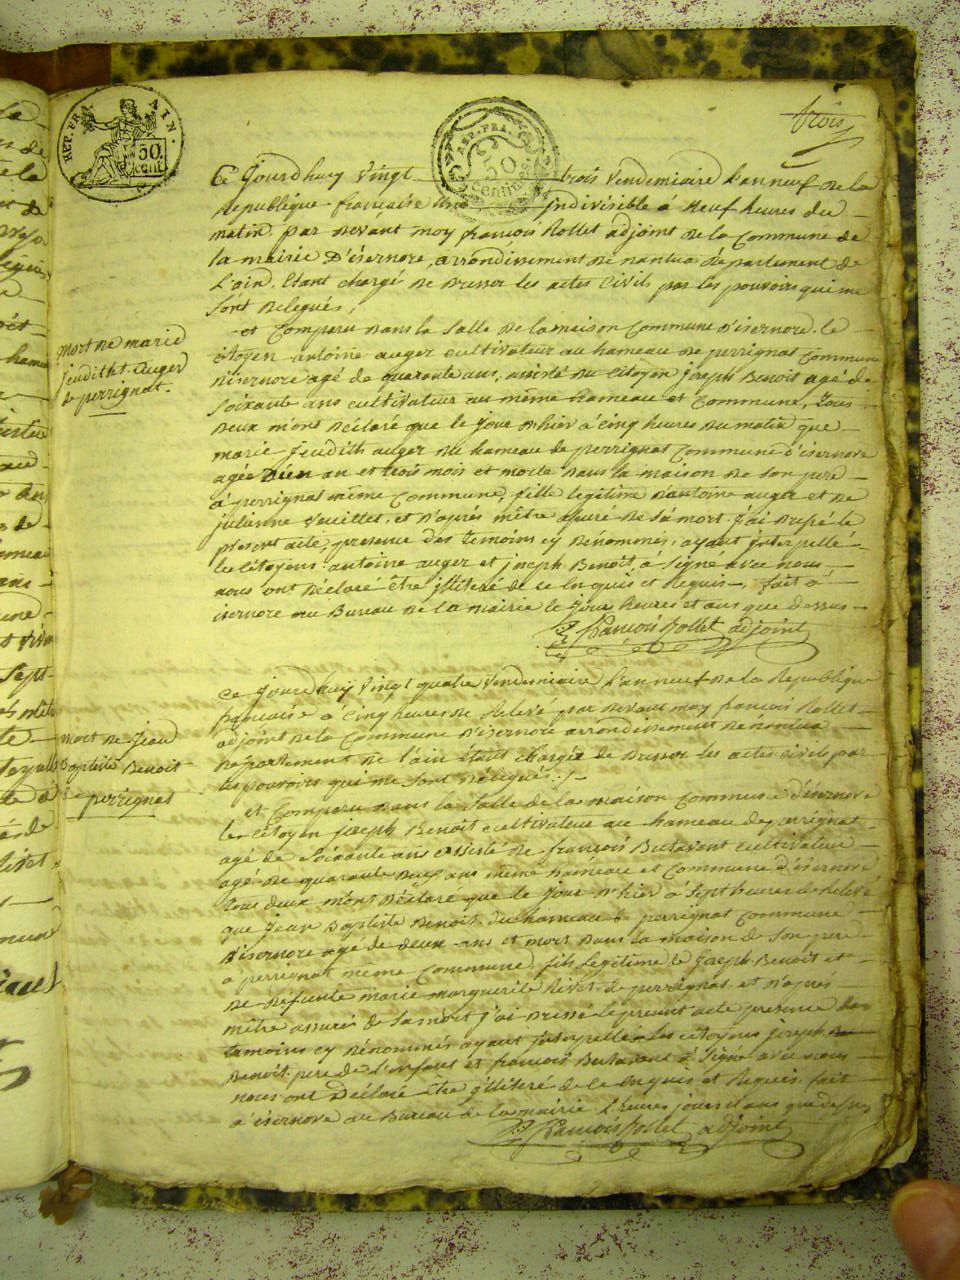 trois
REP. FRA. AIN.
50 cent
REP. FRA.
50 centimes
Ce Jourdhuy Vingt trois Vendemiaire L'an neuf de la
Republique française une Jndivisible à Neuf heures du
matin par devant moy françois Rollet adjoint de la Commune de
la mairie D'isernore, arrondissement de nantua departement de
L'ain, Etant chargé de Dresser les actes Civils par les pouvoirs qui me
sont delegués,
et Comparu dans la Salle de la maison Commune d'isernore. le
Citoyen antoine auger cultivateur au hameau de perrignat Commune
disernore agé de quarante ans, assisté du Citoyen joseph Benoit agé de
soixante ans cultivateur au même hameau et Commune, Tous
deux m'ont Déclaré que le Jour d'hier à Cinq heures du matin que
marie Jeudith auger du hameau de perrignat Commune d'isernore
agée D'un an et trois mois et morte dans la maison de son pere
à perrignat même Commune, fille legitime dantoine auger et de
julienne Vuillet, et d'après m'être assuré de sa mort j'ai dressé le
present acte, presence des temoins cy denommés, ayant jnterpellé
les Citoyens antoine auger et joseph Benoit, à signé avec nous,
nous ont déclaré être jlliteré de ce Enquis et Requis, fait à
isernore au Bureau de la mairie le Jour heures et ans que dessus
françois Rollet adjoint
mort de marie
jeuditht auger
de perrignat.
Ce Jourdhuy Vingt quatre Vendemiaire L'an neuf de la Republique
française à Cinq heures de Relevé par devant moy francois Rollet
adjoint de la Commune d'isernore arrondissement de nantua
departement de l'ain étant Chargé de Dresser les actes civils par
les pouvoirs qui me sont delegués./.
mort de Jean
Baptiste Benoit
de perrignat
et Comparu dans la Salle de la maison Commune d'isernore
le citoyen joseph Benoit cultivateur au hameau de perrignat
agé de soixante ans assisté de françois Butavant cultivateur
agé de quarante deux ans même hameau et Commune d'isernore
Tous deux m'ont declaré que le Jour d'hier à sept heures de Relevé
que jean Baptiste Benoit du hameau de perrignat Commune
d'isernore agé de deux ans et mort dans la maison de son pere
à perrignat même Commune, fils legitime de joseph Benoit et
de defunte marie marguerite Rivet de perrignat et d'après
m'être assuré de sa mort j'ai dressé le present acte presence des
temoins cy dénommés ayant jnterpellé les citoyens joseph
Benoit pere de l'enfant et francois Butavant à signé avec nous
nous ont Declaré être jlliteré de ce Enquis et Requis. fait
à isernore au Bureau de la mairie l'heures jours et ans que dessus
françois Rollet adjoint